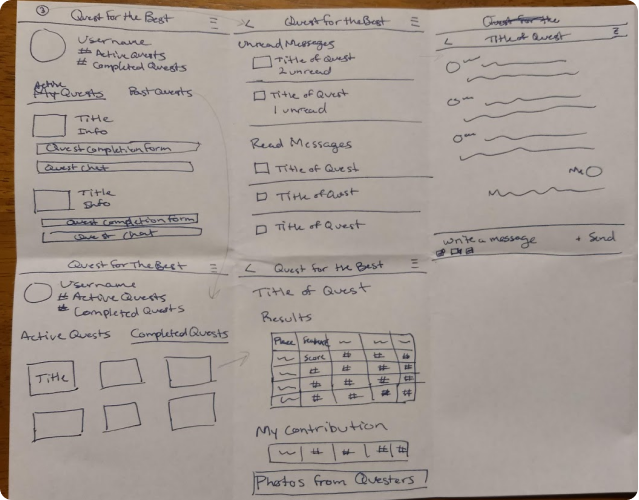 3
Quest for the Best
Username
# Active Quests
# Completed Quests
Active
My Quests Past Quests
Title
Info
Quest completion form
Quest chat
Title
Info
Quest completion form
Quest chat
< Quest for the Best
Unread Messages
Title of Quest
2 unread
Title of Quest
1 unread
Read Messages
Title of Quest
Title of Quest
Title of Quest
Quest for the
< Title of Quest
Me
write a message + Send
Quest for The Best
Username
# Active Quests
# Completed Quests
Active Quests Completed Quests
Title
< Quest for the Best
Title of Quest
Results
Place
Score # # #
# # # #
# # # #
# # # #
My Contribution
# # # #
Photos from Questers